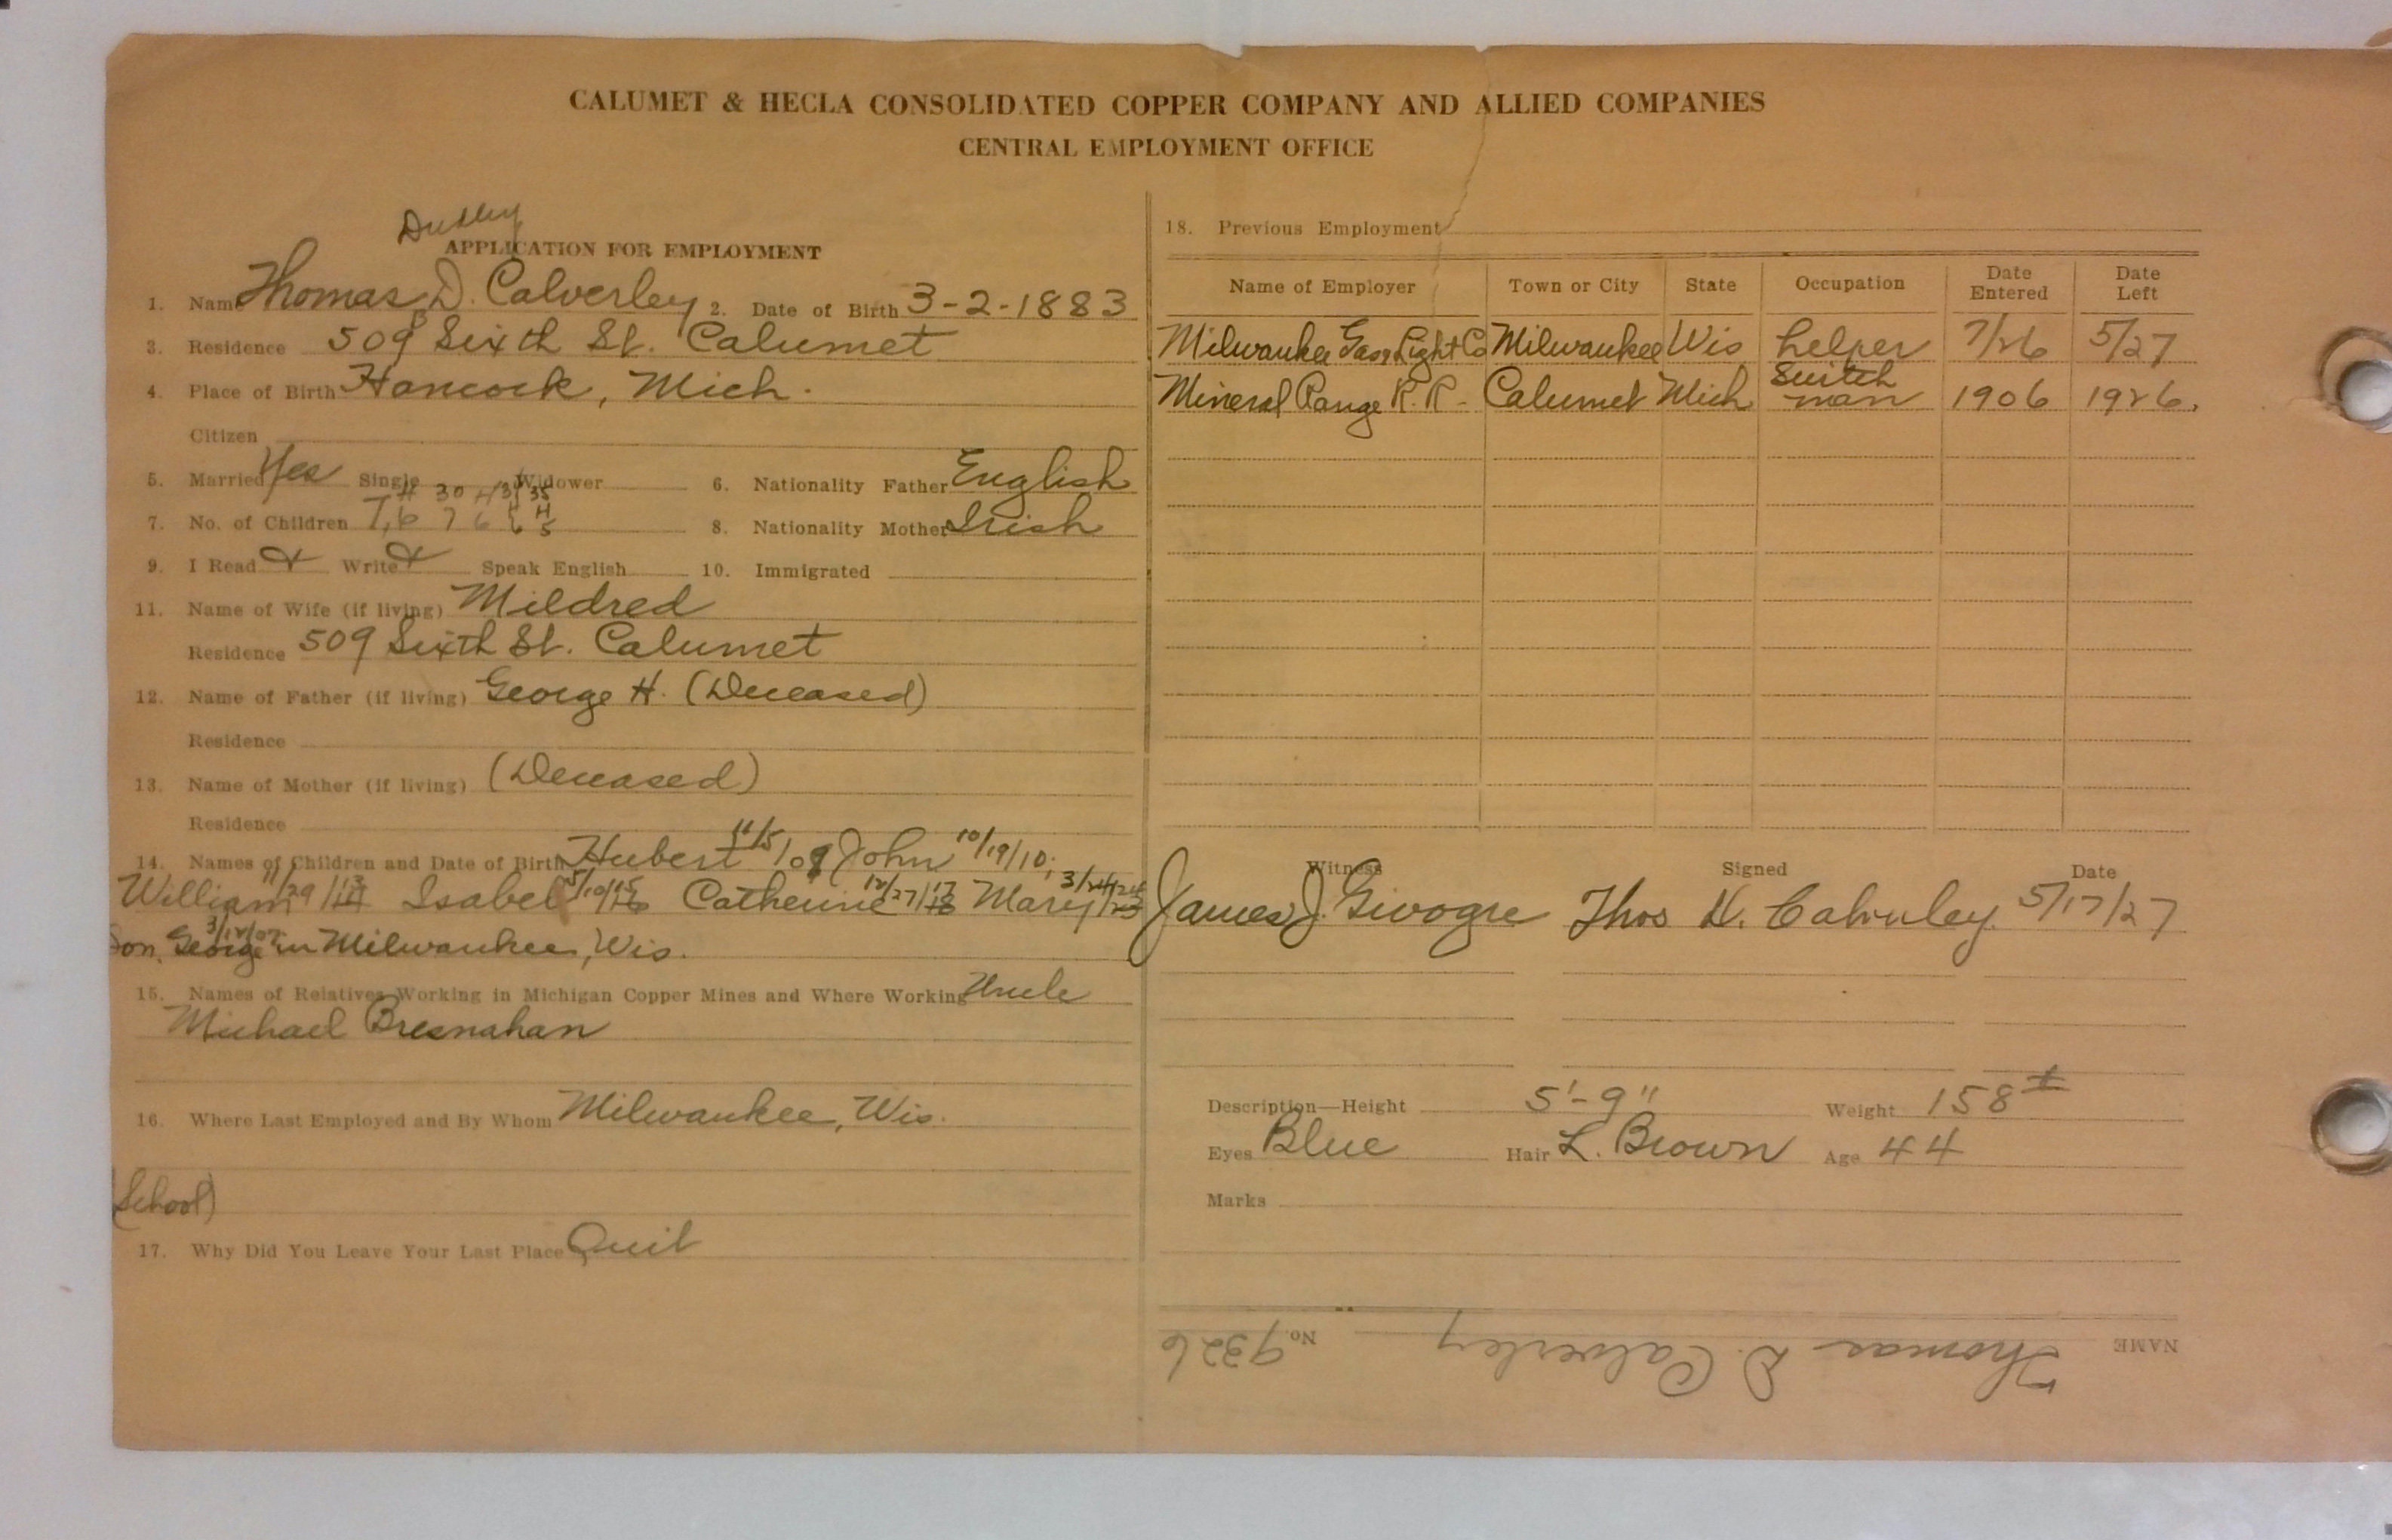 CALUMET & HECLA CONSOLIDATED COPPER COMPANY AND ALLIED COMPANIES
CENTRAL EMPLOYMENT OFFICE
Dudley
APPLICATION FOR EMPLOYMENT
1. Name Thomas D. Calverley 2. Date of Birth 3-2-1883
3. Residence 509 Sixth St. Calumet
4. Place of Birth Hancock, Mich.
Citizen
5. Married Yes Single Widower 6. Nationality Father English
7. No. of Children 7, 6 7 6 6 5 8. Nationality Mother Irish
9. I Read Write Speak English 10. Immigrated
11. Name of Wife (if living) Mildred
Residence 509 Sixth St. Calumet
12. Name of Father (if living) George H. (Deceased)
Residence
13. Name of Mother (if living) (Deceased)
Residence
14. Names of Children and Date of Birth Hubert 11/5/08 John 10/19/10;
William 11/29/13 Isabel 5/10/15 Catherine 12/27/17 Mary 3/24/24
Son, George 3/12/07 in Milwaukee, Wis.
15. Names of Relatives Working in Michigan Copper Mines and Where Working Uncle
Michael Bresnahan
16. Where Last Employed and By Whom Milwaukee, Wis.
(School)
17. Why Did You Leave Your Last Place Quit
18. Previous Employment
Name of Employer Town or City State Occupation Date Entered Date Left
Milwaukee Gas Light Co Milwaukee Wis helper 7/26 5/27
Mineral Range R.R. Calumet Mich Switch man 1906 1926.
Witness Signed Date
James J. Givogre Thos D. Calverley 5/17/27
Description—Height 5'-9" Weight 158#
Eyes Blue Hair L. Brown Age 44
Marks
NAME Thomas D. Calverley No. 9326